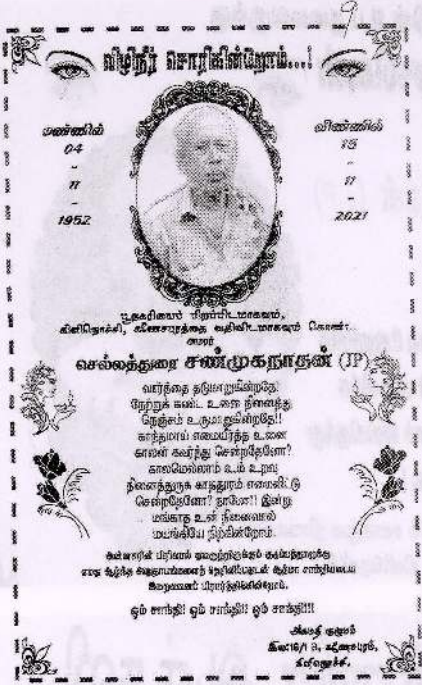 9
விழிநீர் சொரிகின்றோம்...!
மண்ணில்
04
-
11
-
1952
விண்ணில்
15
-
11
-
2021
பூநகரியைப் பிறப்பிடமாகவும்,
கிளிநொச்சி, கணேசபுரத்தை வதிவிடமாகவும் கொண்ட
அமரர்
செல்லத்துரை சண்முகநாதன் (JP)
வார்த்தை தடுமாறுகின்றதே!
நேற்றுக் கண்ட உனை நினைத்து
நெஞ்சம் உருமாறுகின்றதே!!
காந்தமாய் எமையீர்த்த உனை
காலன் கவர்ந்து சென்றதேனோ?
காலமெல்லாம் உம் உறவு
நினைத்துருக காததூரம் எமைவிட்டு
சென்றதேனோ? நாமோ!! இன்று
மங்காத உன் நினைவால்
மயங்கியே நிற்கின்றோம்.
அன்னாரின் பிரிவால் துயறுற்றிருக்கும் குடும்பத்தாருக்கு
எமது ஆழ்ந்த அனுதாபங்களைத் தெரிவிப்பதுடன் ஆத்மா சாந்தியடைய
இறைவனைப் பிரார்த்திக்கின்றோம்.
ஓம் சாந்தி!! ஓம் சாந்தி!! ஓம் சாந்தி!!!
குடும்பம்
இல:16/1 கணேசபுரம்,
கிளிநொச்சி.